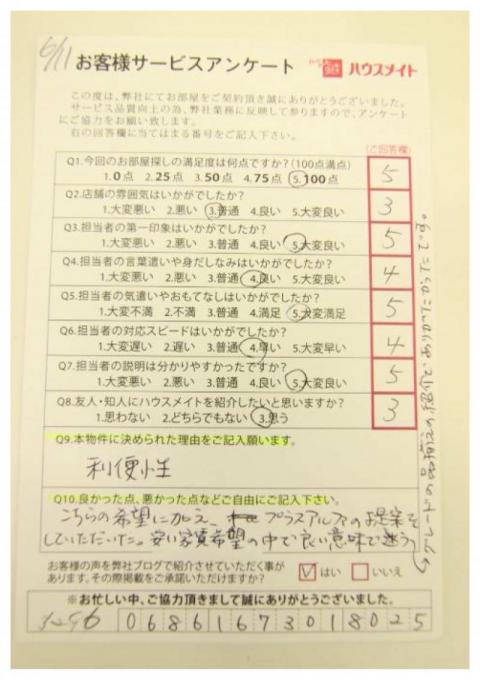 6/11
お客様サービスアンケート ハウスメイト
この度は、弊社にてお部屋をご契約頂き誠にありがとうございました。
サービス品質向上の為、弊社業務に反映して参りますので、アンケート
にご協力をお願い致します。
右の回答欄に当てはまる番号をご記入下さい。
(ご回答欄)
Q1.今回のお部屋探しの満足度は何点ですか?(100点満点)
1.0点 2.25点 3.50点 4.75点 5.100点
5
Q2.店舗の雰囲気はいかがでしたか?
1.大変悪い 2.悪い 3.普通 4.良い 5.大変良い
3
Q3.担当者の第一印象はいかがでしたか?
1.大変悪い 2.悪い 3.普通 4.良い 5.大変良い
5
Q4.担当者の言葉遣いや身だしなみはいかがでしたか?
1.大変悪い 2.悪い 3.普通 4.良い 5.大変良い
4
Q5.担当者の気遣いやおもてなしはいかがでしたか?
1.大変不満 2.不満 3.普通 4.満足 5.大変満足
5
Q6.担当者の対応スピードはいかがでしたか?
1.大変遅い 2.遅い 3.普通 4.早い 5.大変早い
4
Q7.担当者の説明は分かりやすかったですか?
1.大変悪い 2.悪い 3.普通 4.良い 5.大変良い
5
Q8.友人・知人にハウスメイトを紹介したいと思いますか?
1.思わない 2.どちらでもない 3.思う
3
Q9.本物件に決められた理由をご記入願います。
利便性
Q10.良かった点、悪かった点などご自由にご記入下さい。
こちらの希望に加え、プラスアルファのお提案を
していただいた。安い家賃希望の中で良い意味で迷う
グレードの品揃えの紹介でありがたかったです。
お客様の声を弊社ブログで紹介させていただく事が
あります。その際掲載をご承諾いただけますか?
はい いいえ
※お忙しい中、ご協力頂きまして誠にありがとうございました。
06861673018025